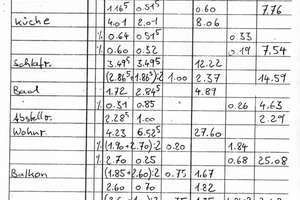 1.16⁵ 0.51⁵ 0.60 7.76
Küche 4.01 2.01 8.06
% 0.64 0.51⁵ 0.33
% 0.60 0.32 0.19 7.54
Schlafz. 3.49⁵ 3.49⁵ 12.22
(2.86⁵+1.86⁵):2 1.00 2.37 14.59
Bad 1.72 2.84⁵ 4.89
% 0.31 0.85 0.26 4.63
Abstellr. 2.28⁵ 1.00 2.29
Wohnz. 4.23 6.52⁵ 27.60
% (1.90+2.70):2 0.80 1.84
% 2.70 0.25 0.68 25.08
Balkon (1.85+2.60):2 0.75 1.67
2.60 0.70 1.82